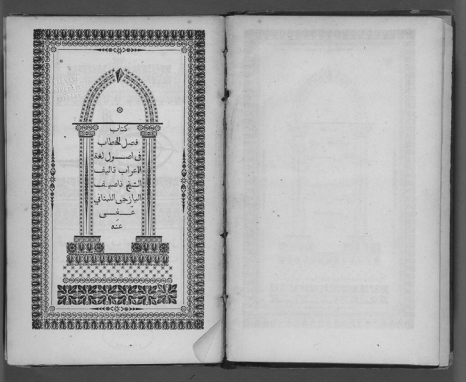 كتاب
فصل الخطاب
فى اصــول لغة
الاعراب تاليف
الشيخ ناصيف
اليازجى اللبناني
عــفــى
عنه